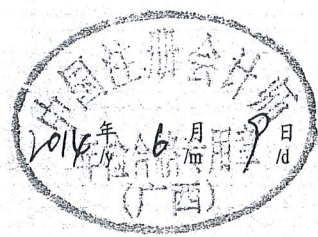 中国注册会计师
2014 年 6 月 9 日
/y /m /d
年检合格专用章
(广西)